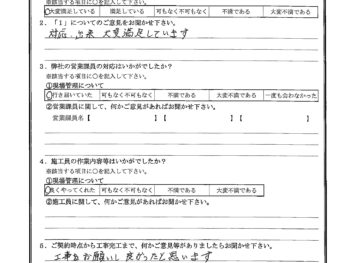 ※該当する項目に○を記入して下さい。
○大変満足している 満足している 可もなく不可もなく 不満である 大変不満である
2．「1」についてのご意見をお聞かせ下さい。
対応、出来 大変満足しています
3．御社の営業課員の対応はいかがでしたか？
※該当する項目に○を記入して下さい。
①現場管理について
○行き届いていた 可もなく不可もなく 不満である 大変不満である 一度も会わなかった
②営業課員に関して、何かご意見があればお聞かせ下さい。
営業課員名【 】【 】
4．施工員の作業内容等はいかがでしたか？
※該当する項目に○を記入して下さい。
①現場管理について
○良くやってくれた 可もなく不可もなく 不満である 大変不満である
②施工員に関して、何かご意見があればお聞かせ下さい。
5．ご契約時点から工事完工まで、何かご意見等がありましたらお聞かせ下さい。
工事をお願いし良かったと思います